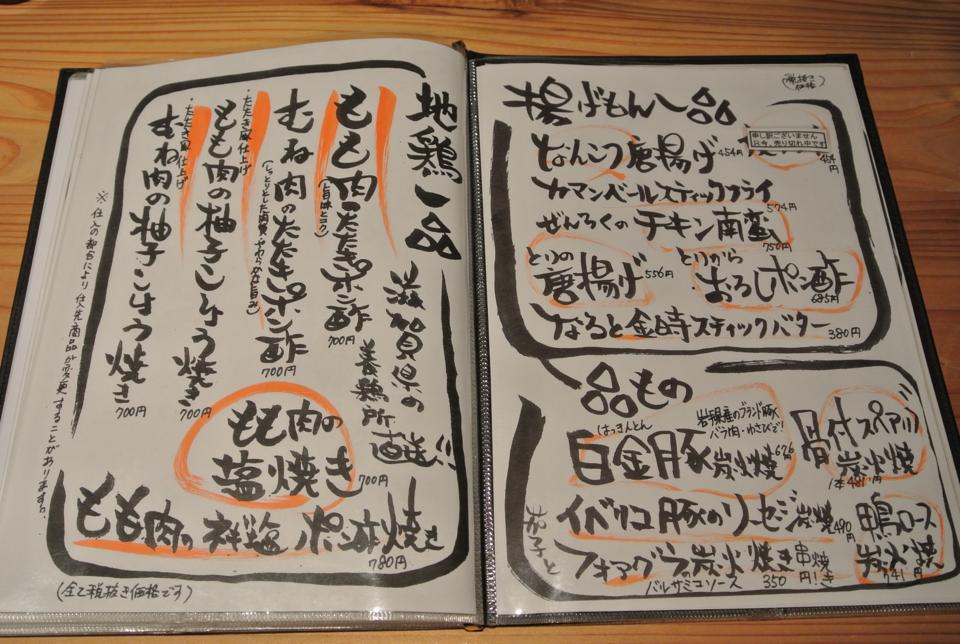 (税抜き
価格)
揚げもん一品
なんこつ唐揚げ 454円
申し訳ございません
只今、売り切れ中です
454円
カマンベールスティックフライ 574円
ぜんろくのチキン南蛮 750円
とりの唐揚げ 556円
とりから おろしポン酢 695円
なると金時スティックバター 380円
一品もの
はっきんとん
白金豚炭火焼 676円
岩手県産のブランド豚
バラ肉・ゆさびで!
骨付スペアリブ
炭火焼
1本 481円
イベリコ豚のソーセージ炭焼 490円
鴨ロース
炭火焼
741円
フォアグラ炭火焼き
バルサミコソース
350円
串焼き!
地鶏一品
滋賀県の
養鶏所
直送!!
もも肉のたたきポン酢 700円
(旨味とコク)
むね肉のたたきポン酢 700円
(しっとりとした肉質・やわらかな旨み)
・たたき風仕上げ
もも肉の柚子こしょう焼き 700円
・たたき風仕上げ
むね肉の柚子こしょう焼き 700円
もも肉の
塩焼き 700円
もも肉の 梅塩 ポン酢焼き 780円
※仕入の都合により仕入先商品が変更することがあります。
(全て税抜き価格です)